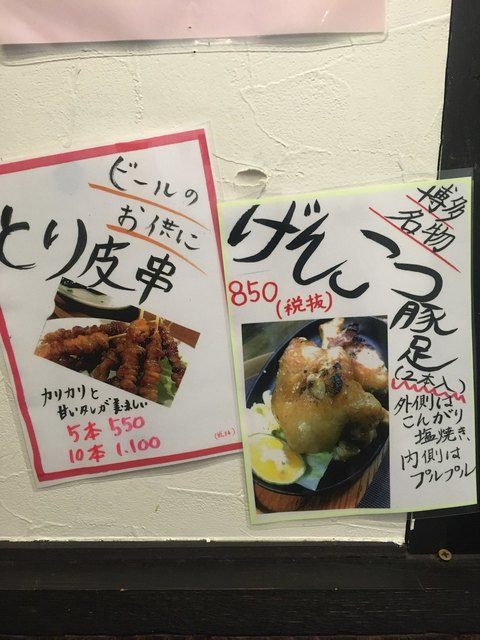 ビールの
お供に
とり皮串
カリカリと
甘いタレが美味しい
5本 550
10本 1.100
(税抜)
博多
名物
げんこつ
豚足
(2本入)
850(税抜)
外側は
こんがり
塩焼き
内側は
プルプル